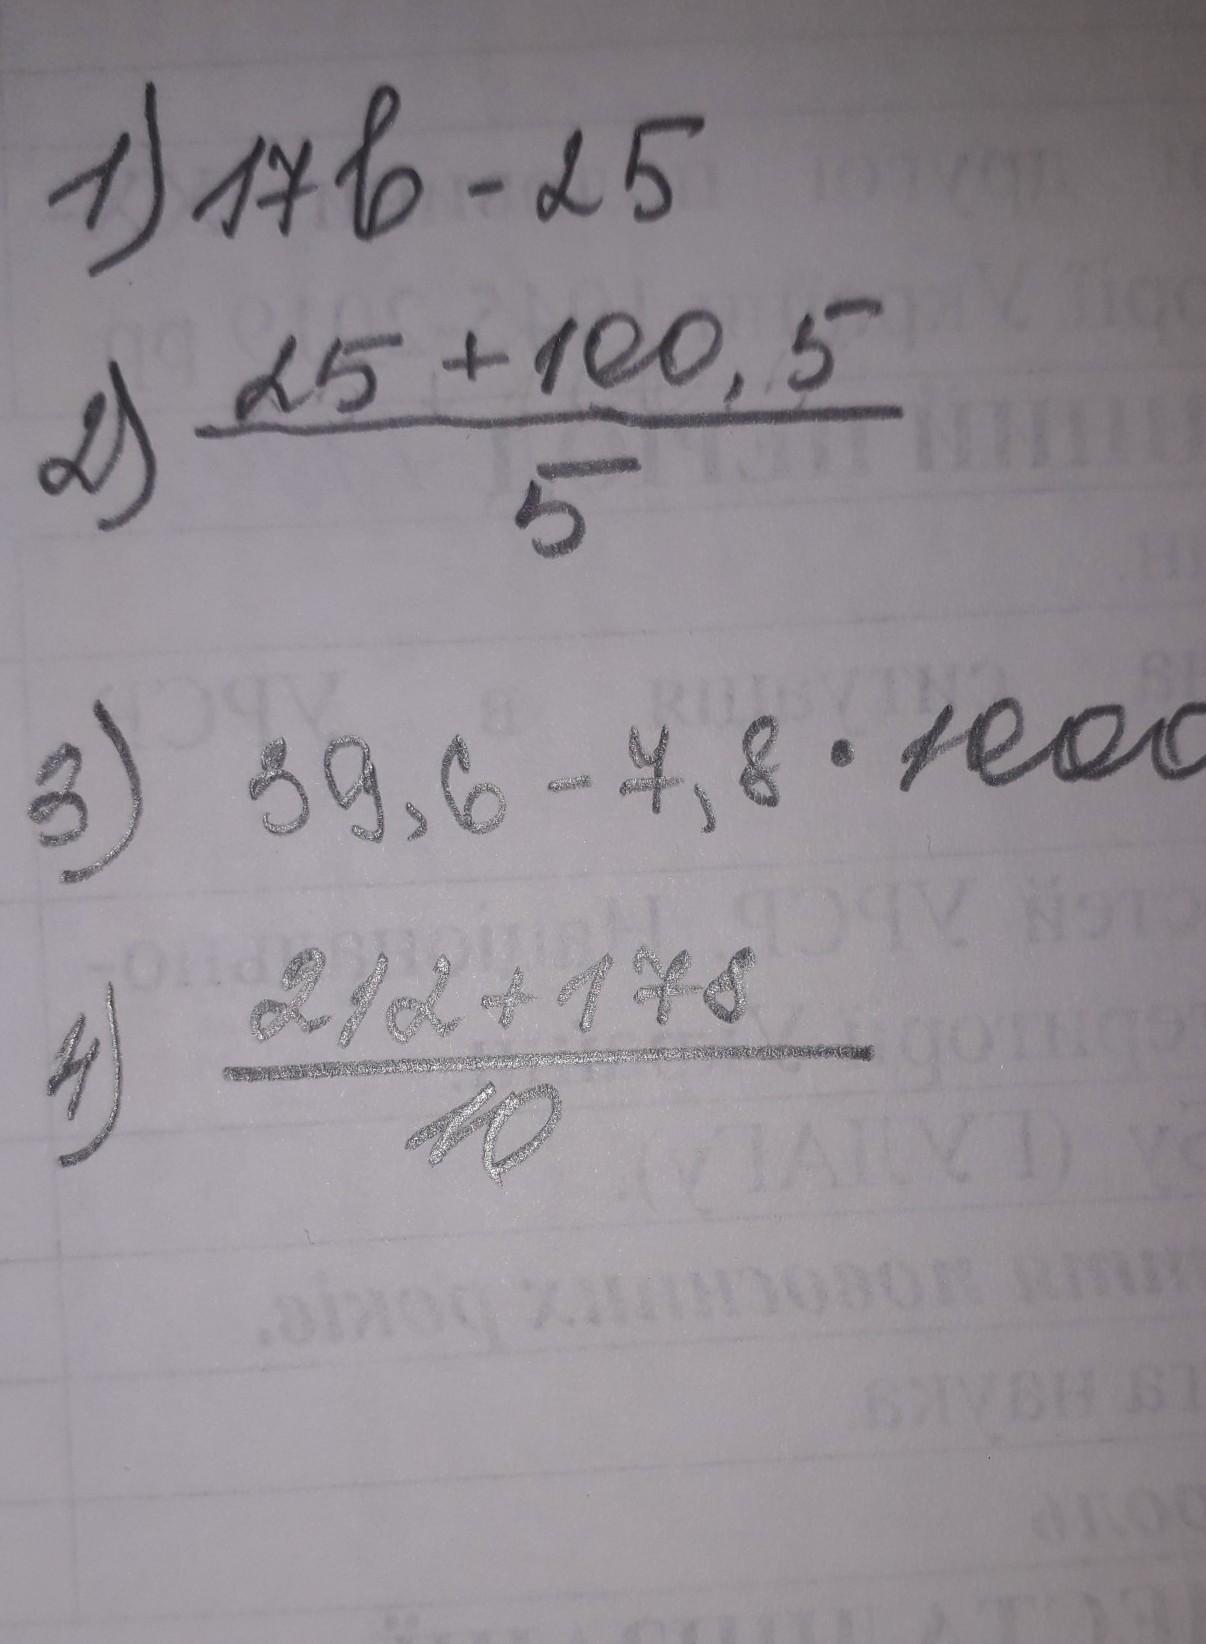 1) 17b - 25
2) (25 + 100,5) / 5
3) 39,6 - 7,8 · 1000
4) (212 + 178) / 10